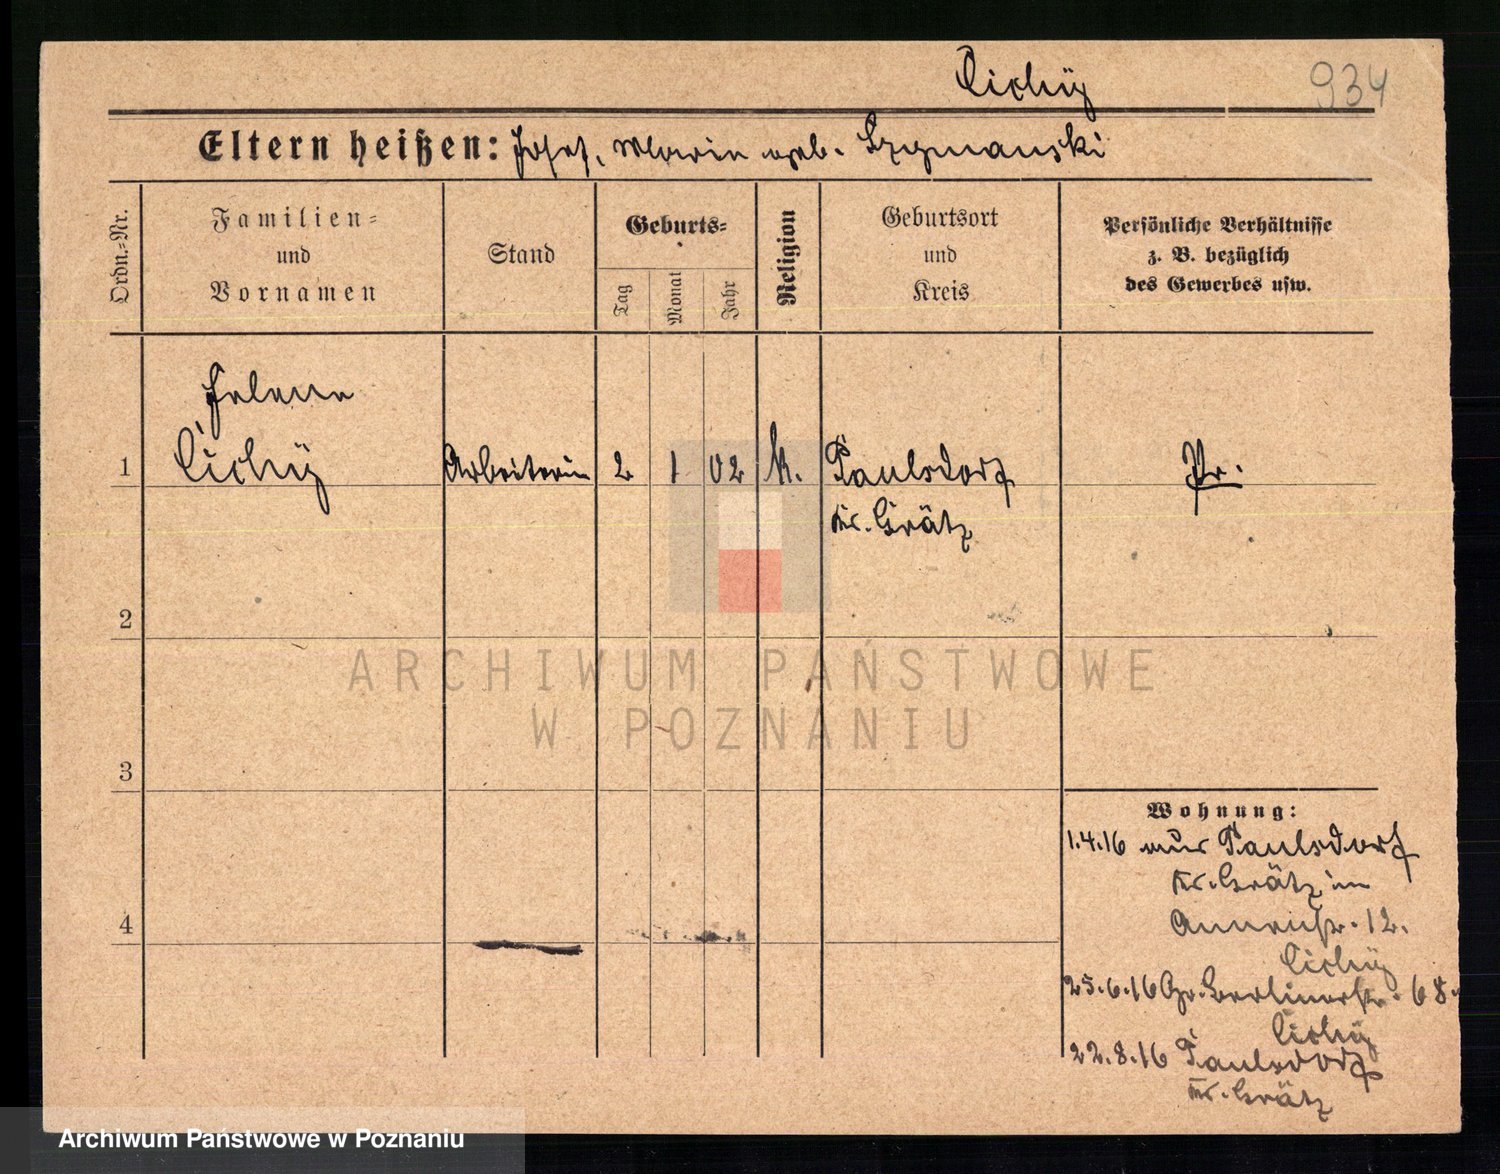 Cichy
934
Eltern heißen: Josef, Maria geb. Szymanski
Ordn.-Nr.
Familien-
und
Vornamen
Stand
Geburts-
Tag
Monat
Jahr
Religion
Geburtsort
und
Kreis
Persönliche Verhältnisse
z. B. bezüglich
des Gewerbes usw.
Helene
1 Cichy Arbeiterin 2 1 02 k. Paulsdorf Pr.
Kr. Grätz
2
3
4
Wohnung:
1.4.16 aus Paulsdorf
Kr. Grätz in
Annenstr. 12.
Cichy
25.6.16 Gr. Berlinerstr. 68.
Cichy
22.8.16 Paulsdorf
Kr. Grätz
ARCHIWUM PAŃSTWOWE
W POZNANIU
Archiwum Państwowe w Poznaniu